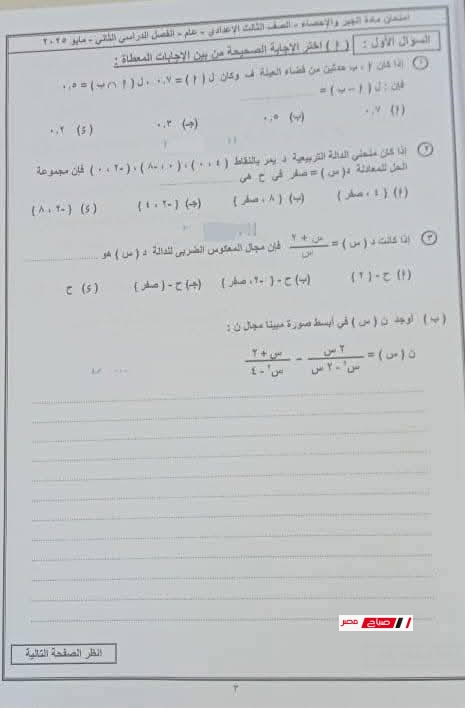 امتحان مادة الجبر والإحصاء - الصف الثالث الإعدادي - عام - الفصل الدراسي الثاني - مايو ٢٠٢٥
السؤال الأول : ( أ ) اختر الإجابة الصحيحة من بين الإجابات المعطاة :
١ إذا كان أ ، ب حدثين من فضاء العينة ف وكان ل ( أ ) = ٠,٧ ، ل ( أ ∩ ب ) = ٠,٥
فإن : ل ( أ - ب ) =
(أ) ٠,٧ (ب) ٠,٥ (جـ) ٠,٣ (د) ٠,٢
٢ إذا كان منحنى الدالة التربيعية د يمر بالنقاط ( ٤ ، ٠ ) ، ( ٠ ، -٨ ) ، ( -٢ ، ٠ ) فإن مجموعة
الحل للمعادلة د ( س ) = صفر في ح هي
(أ) { ٤ ، صفر } (ب) { ٨ ، صفر } (جـ) { -٢ ، ٤ } (د) { -٢ ، ٨ }
٣ إذا كانت د ( س ) = س + ٢ / س فإن مجال المعكوس الضربي للدالة د ( س ) هو
(أ) ح - { ٢ } (ب) ح - { -٢ ، صفر } (جـ) ح - { صفر } (د) ح
( ب ) أوجد ن ( س ) في أبسط صورة مبينا مجال ن :
ن ( س ) = ٢ س / س² - ٢ س - س + ٢ / س² - ٤
صباح مصر
انظر الصفحة التالية
٢